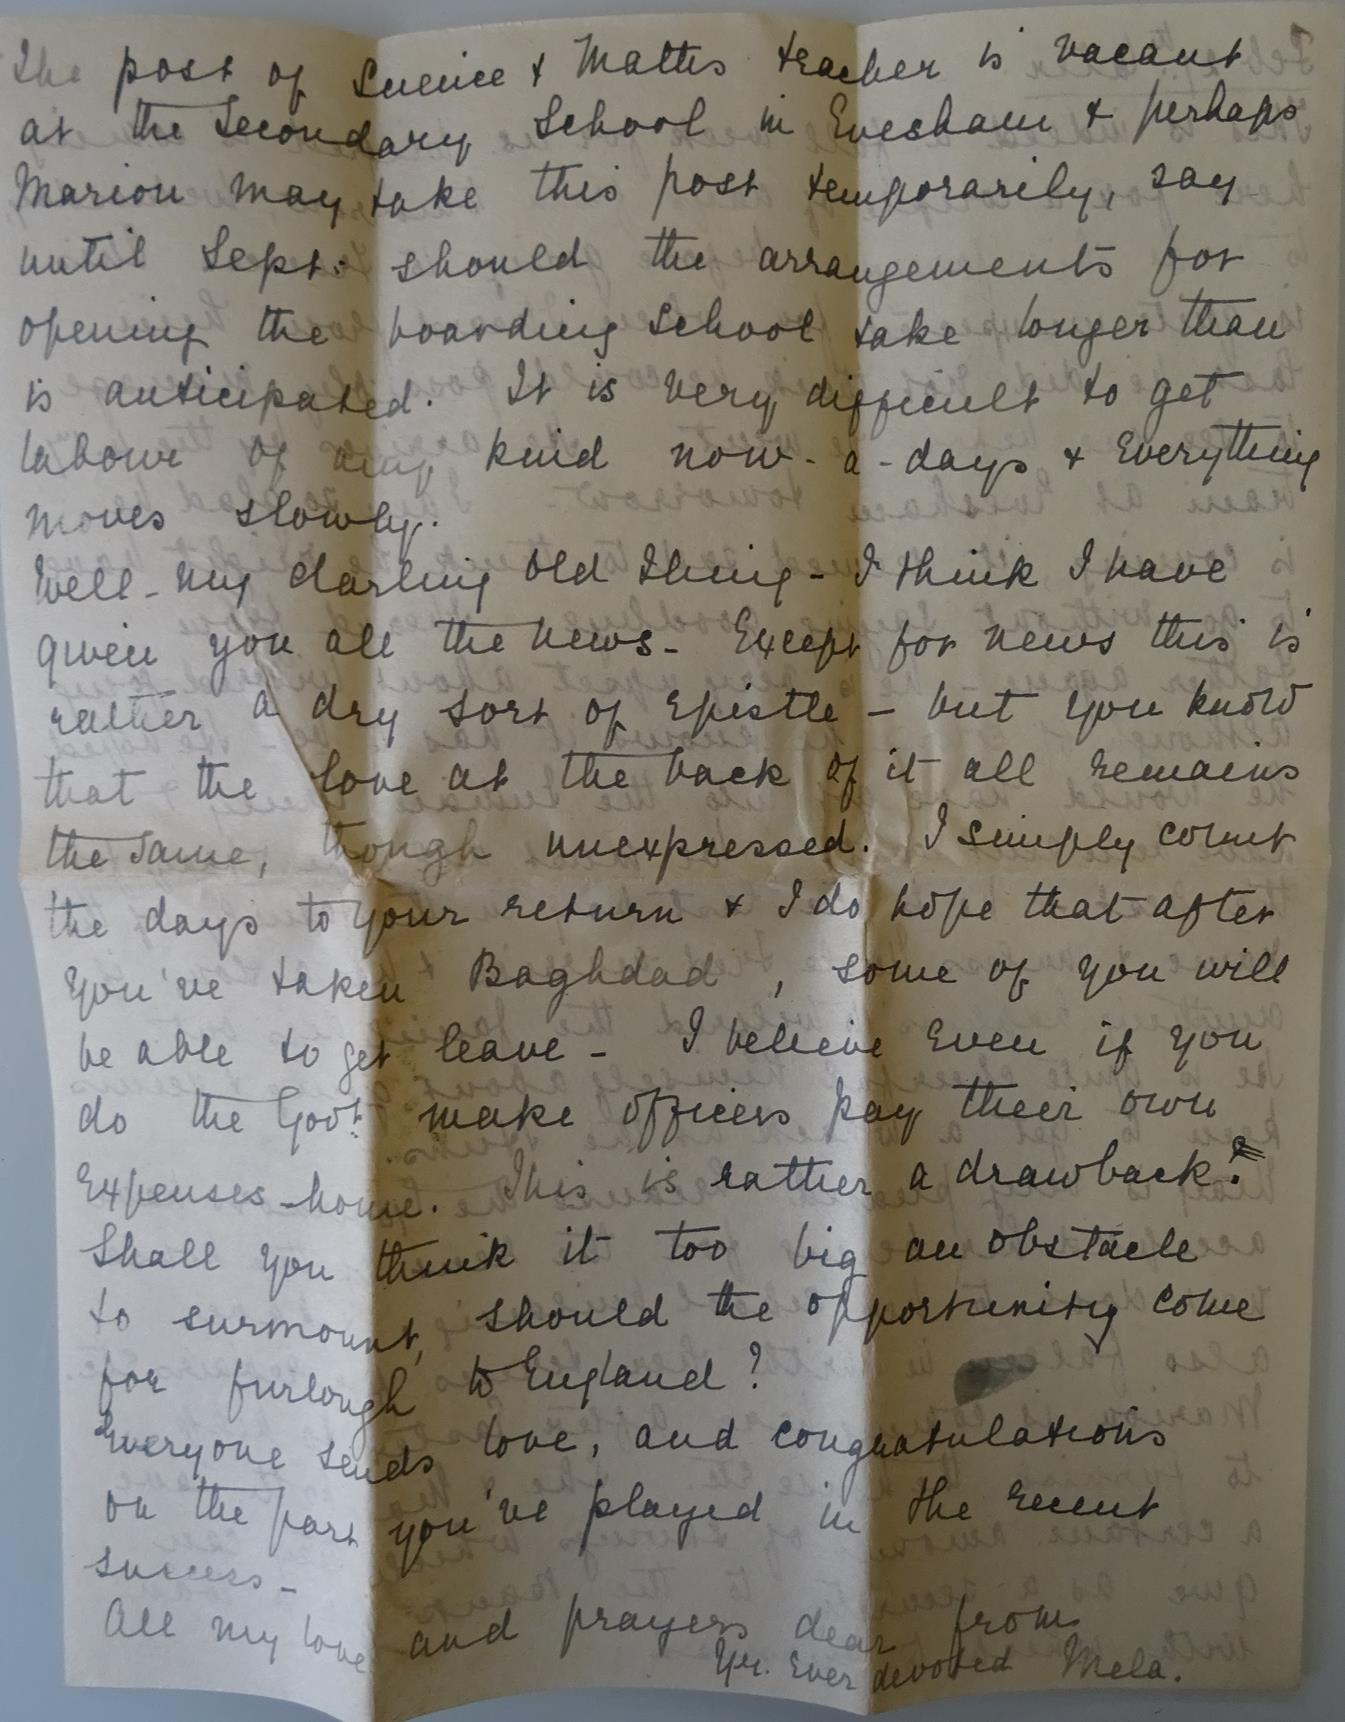 The post of Science & Maths teacher is vacant
at the Secondary School in Evesham & perhaps
Marion may take this post temporarily, say
until Sept: should the arrangements for
opening the boarding school take longer than
is anticipated. It is very difficult to get
labour of any kind now-a-days & everything
moves slowly.
Well - my darling old thing - I think I have
given you all the news - Except for news this is
rather a dry sort of Epistle - but you know
that the love at the back of it all remains
the same, though unexpressed. I simply count
the days to your return & I do hope that after
you've taken Baghdad, some of you will
be able to get leave - I believe even if you
do the Govt. make officers pay their own
Expenses-home. This is rather a drawback.
Shall you think it too big an obstacle
to surmount, should the opportunity come
for furlough to England?
Everyone sends love, and congratulations
on the part you've played in the recent
success -
All my love and prayers dear from
Yr. Ever devoted Mela.